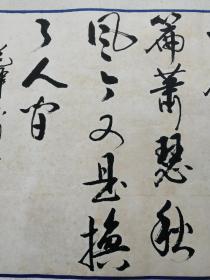 篇萧瑟秋
风今又是换
了人间
毛泽